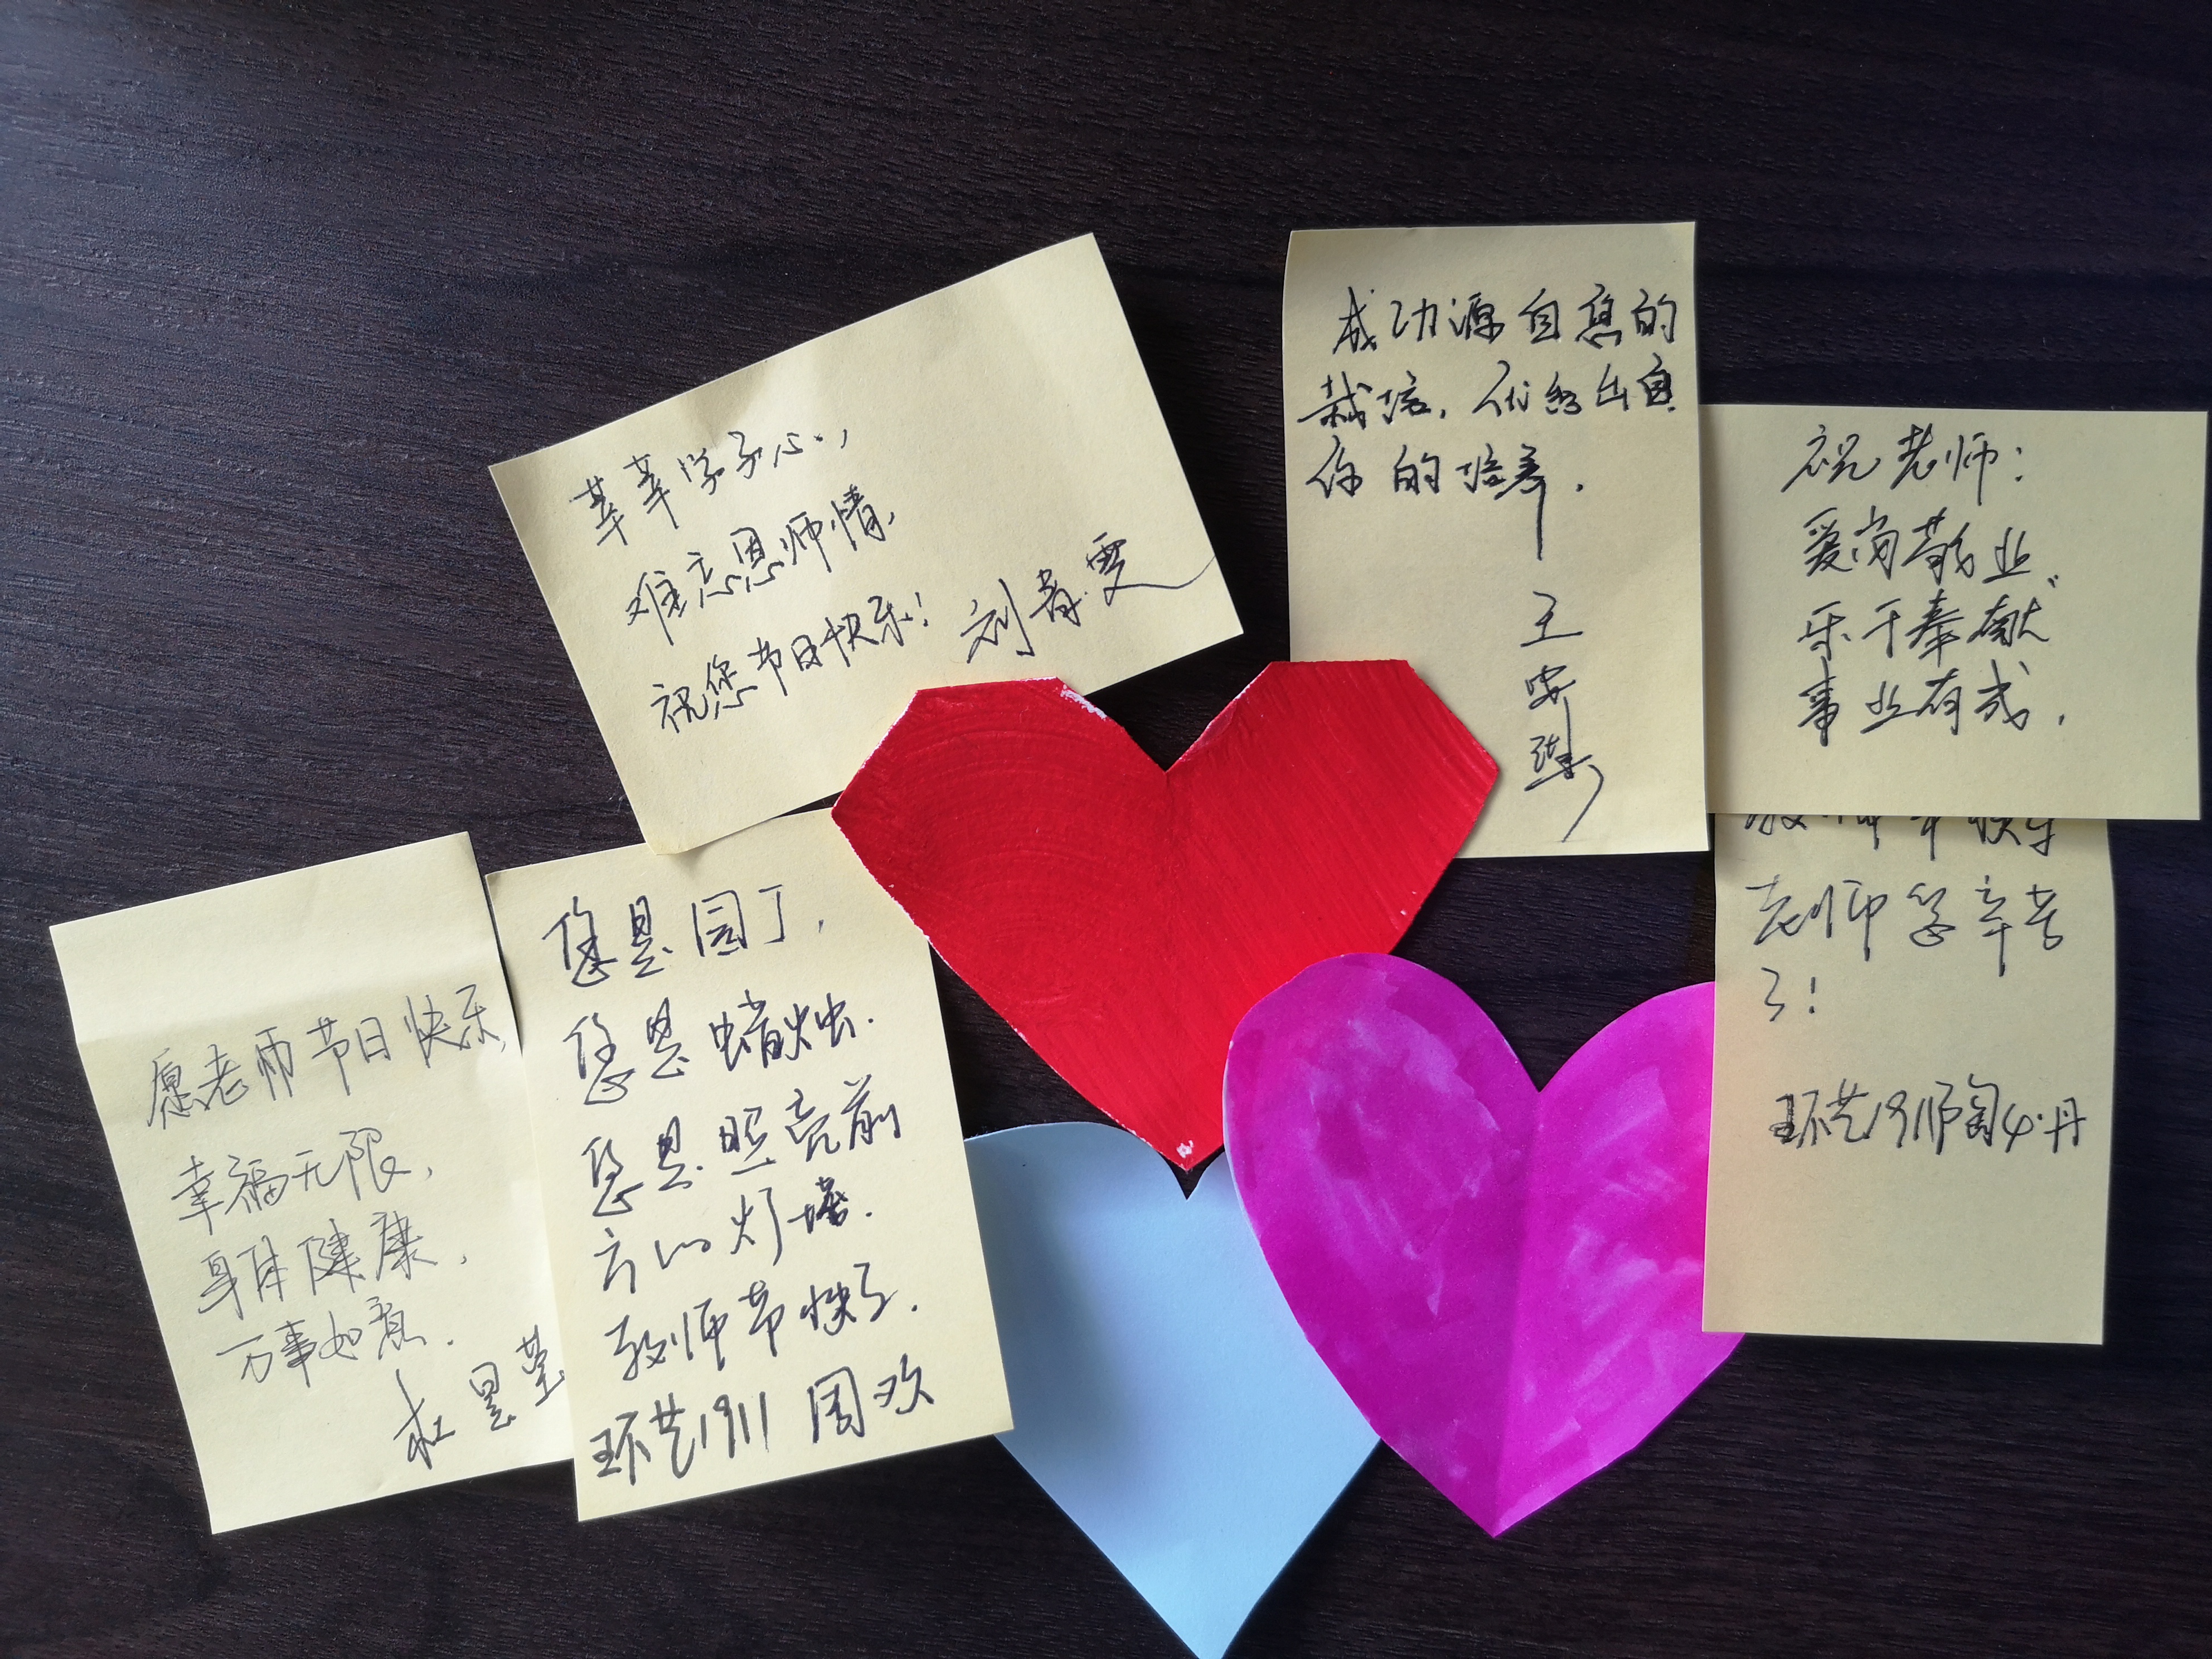 莘莘学子心,
难忘恩师情,
祝您节日快乐!
刘青雯
成功源自您的
栽培,优秀出自
你的培养.
王
安
祝老师:
爱岗敬业,
乐于奉献
事业有成.
教师节快乐
老师您辛苦
了!
环艺1911陶
丹
愿老师节日快乐,
幸福无限,
身体健康,
万事如意.
您是园丁,
您是蜡烛.
您是照亮前
方的灯塔.
教师节快乐.
环艺1911 周欢